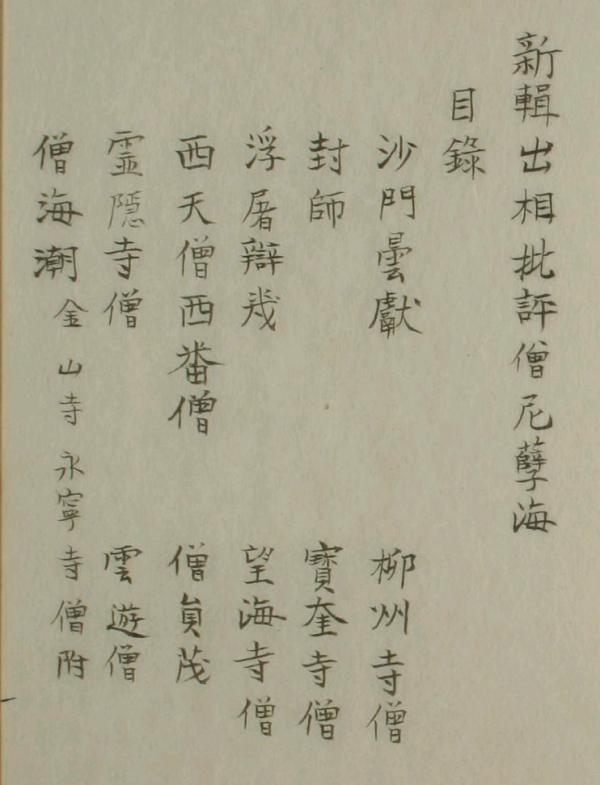 新輯出相批評僧尼孽海
目錄
沙門曇獻 柳州寺僧
封師 寶奎寺僧
浮屠辯幾 望海寺僧
西天僧西番僧 僧員茂
靈隱寺僧 雲遊僧
僧海潮 金山寺永寧寺僧附